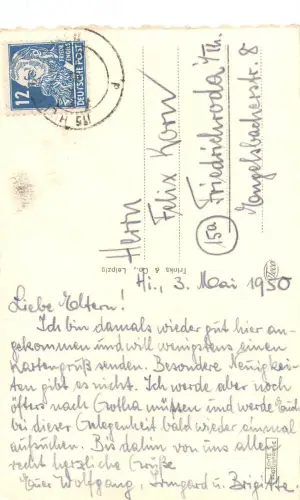 12
DEUTSCHE POST
Herrn
Felix Korn
(15a) Friedrichroda i/Th.
Engelsbacherstr. 8
& Co., Leipzig
Hi., 3. Mai 1950
Liebe Eltern!
Ich bin damals wieder gut hier an-
gekommen und will wenigstens einen
Kartengruß senden. Besondere Neuigkei-
ten gibt es nicht. Ich werde aber noch
öfters nach Gotha müssen und werde Euch
bei dieser Gelegenheit bald wieder einmal
aufsuchen. Bis dahin von uns allen
recht herzliche Grüße
Euer Wolfgang, Irmgard und Brigitte.